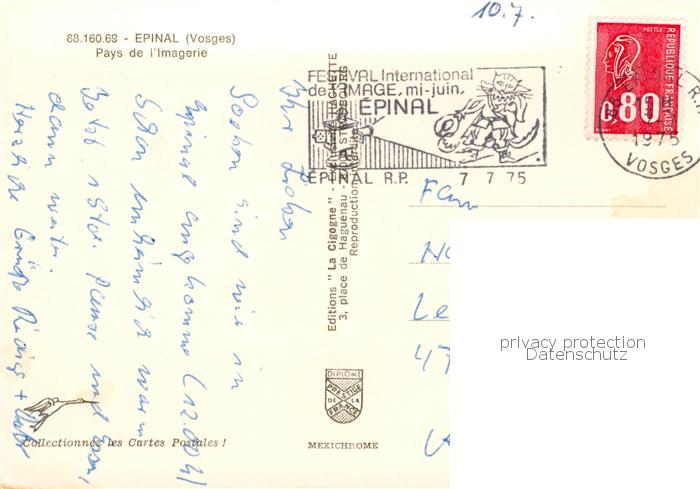 10.7.
88.160.69 - EPINAL (Vosges)
Pays de l'Imagerie
FESTIVAL International
de l'IMAGE, mi-juin,
EPINAL
EPINAL R.P. 7 7 75
POSTES
REPUBLIQUE FRANÇAISE
0,80
1975
VOSGES
Ihr Lieben
Soeben sind wir in
Epinal angekommen (12.00 h)
Schon unheimlich warm
Jetzt 1 Std. Pause und Essen,
dann weiter.
Herzliche Grüße
Editions " La Cigogne " - Exclusivité HACHETTE
3, place de Haguenau - 67000 STRASBOURG
Reproduction interdite
Fam
Le
47
privacy protection
Datenschutz
DIPLOME
PRESTIGE
DE LA
FRANCE
MEXICHROME
Collectionnez les Cartes Postales !